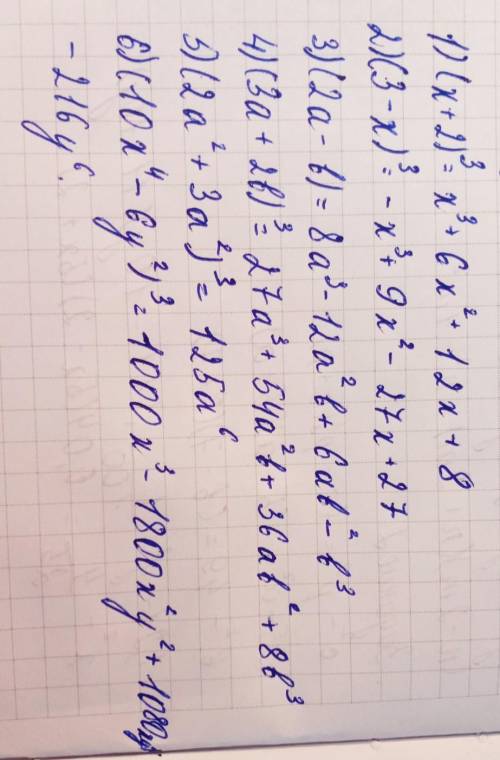 1) (x+2)³ = x³ + 6x² + 12x + 8
2) (3-x)³ = -x³ + 9x² - 27x + 27
3) (2a - b) = 8a³ - 12a²b + 6ab² - b³
4) (3a + 2b)³ = 27a³ + 54a²b + 36ab² + 8b³
5) (2a² + 3a²)³ = 125a⁶
6) (10x⁴ - 6y²)³ = 1000x³ - 1800x²y² + 1080
- 216y⁶.